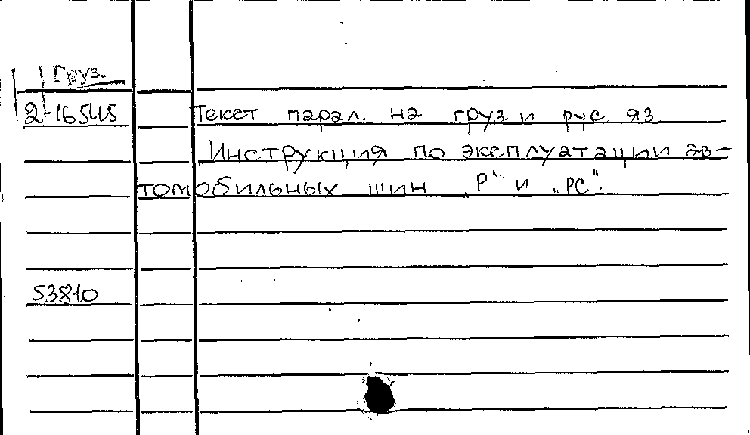 Груз.
2-16545
Текст парал. на груз и рус яз
Инструкция по эксплуатации ав-
томобильных шин „Р“ и „РС“.
53810